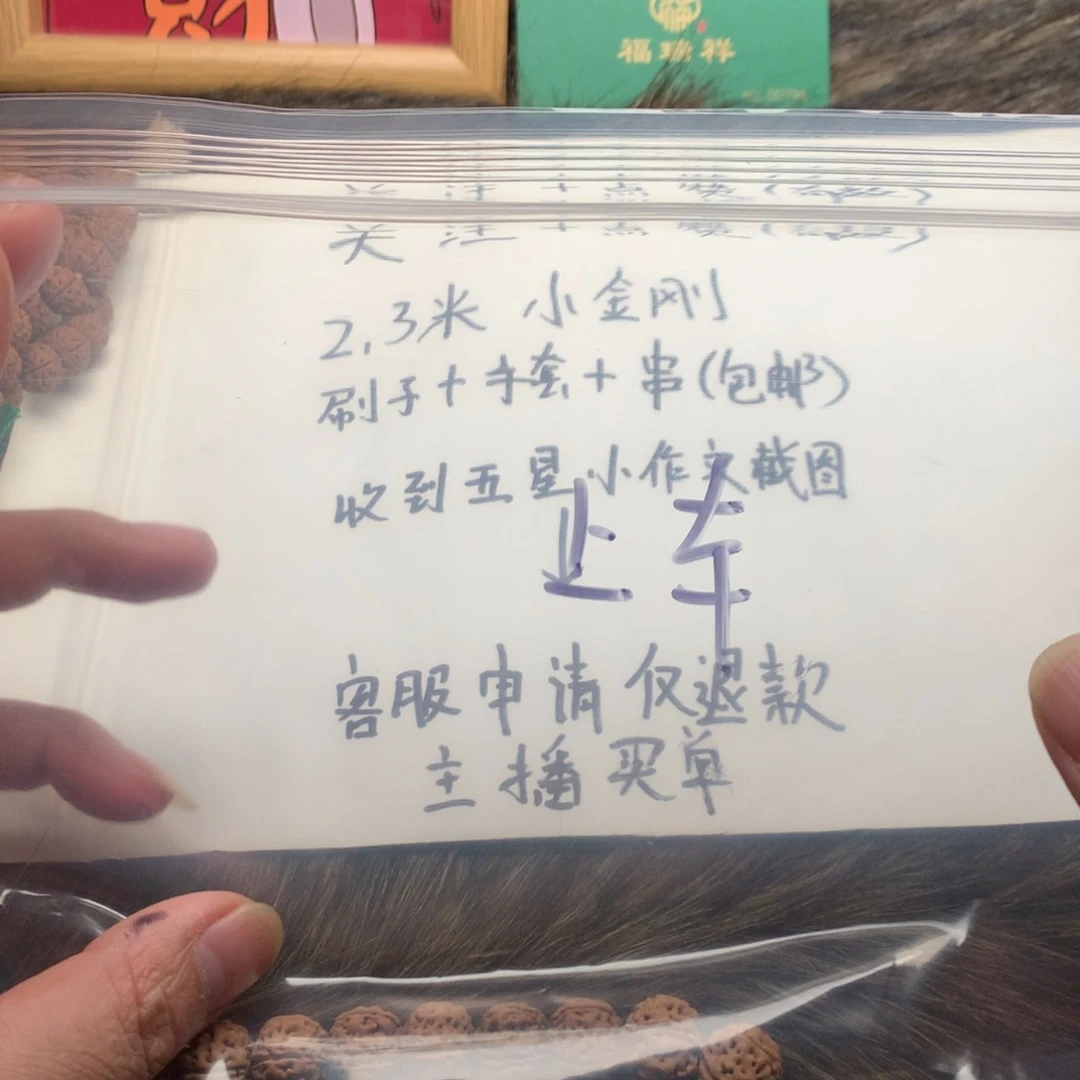 福瑞祥
关 注 + 点 赞
2.3米 小金刚
刷子+手套+串(包邮)
收到五星小作文截图
上车
客服申请仅退款
主播买单